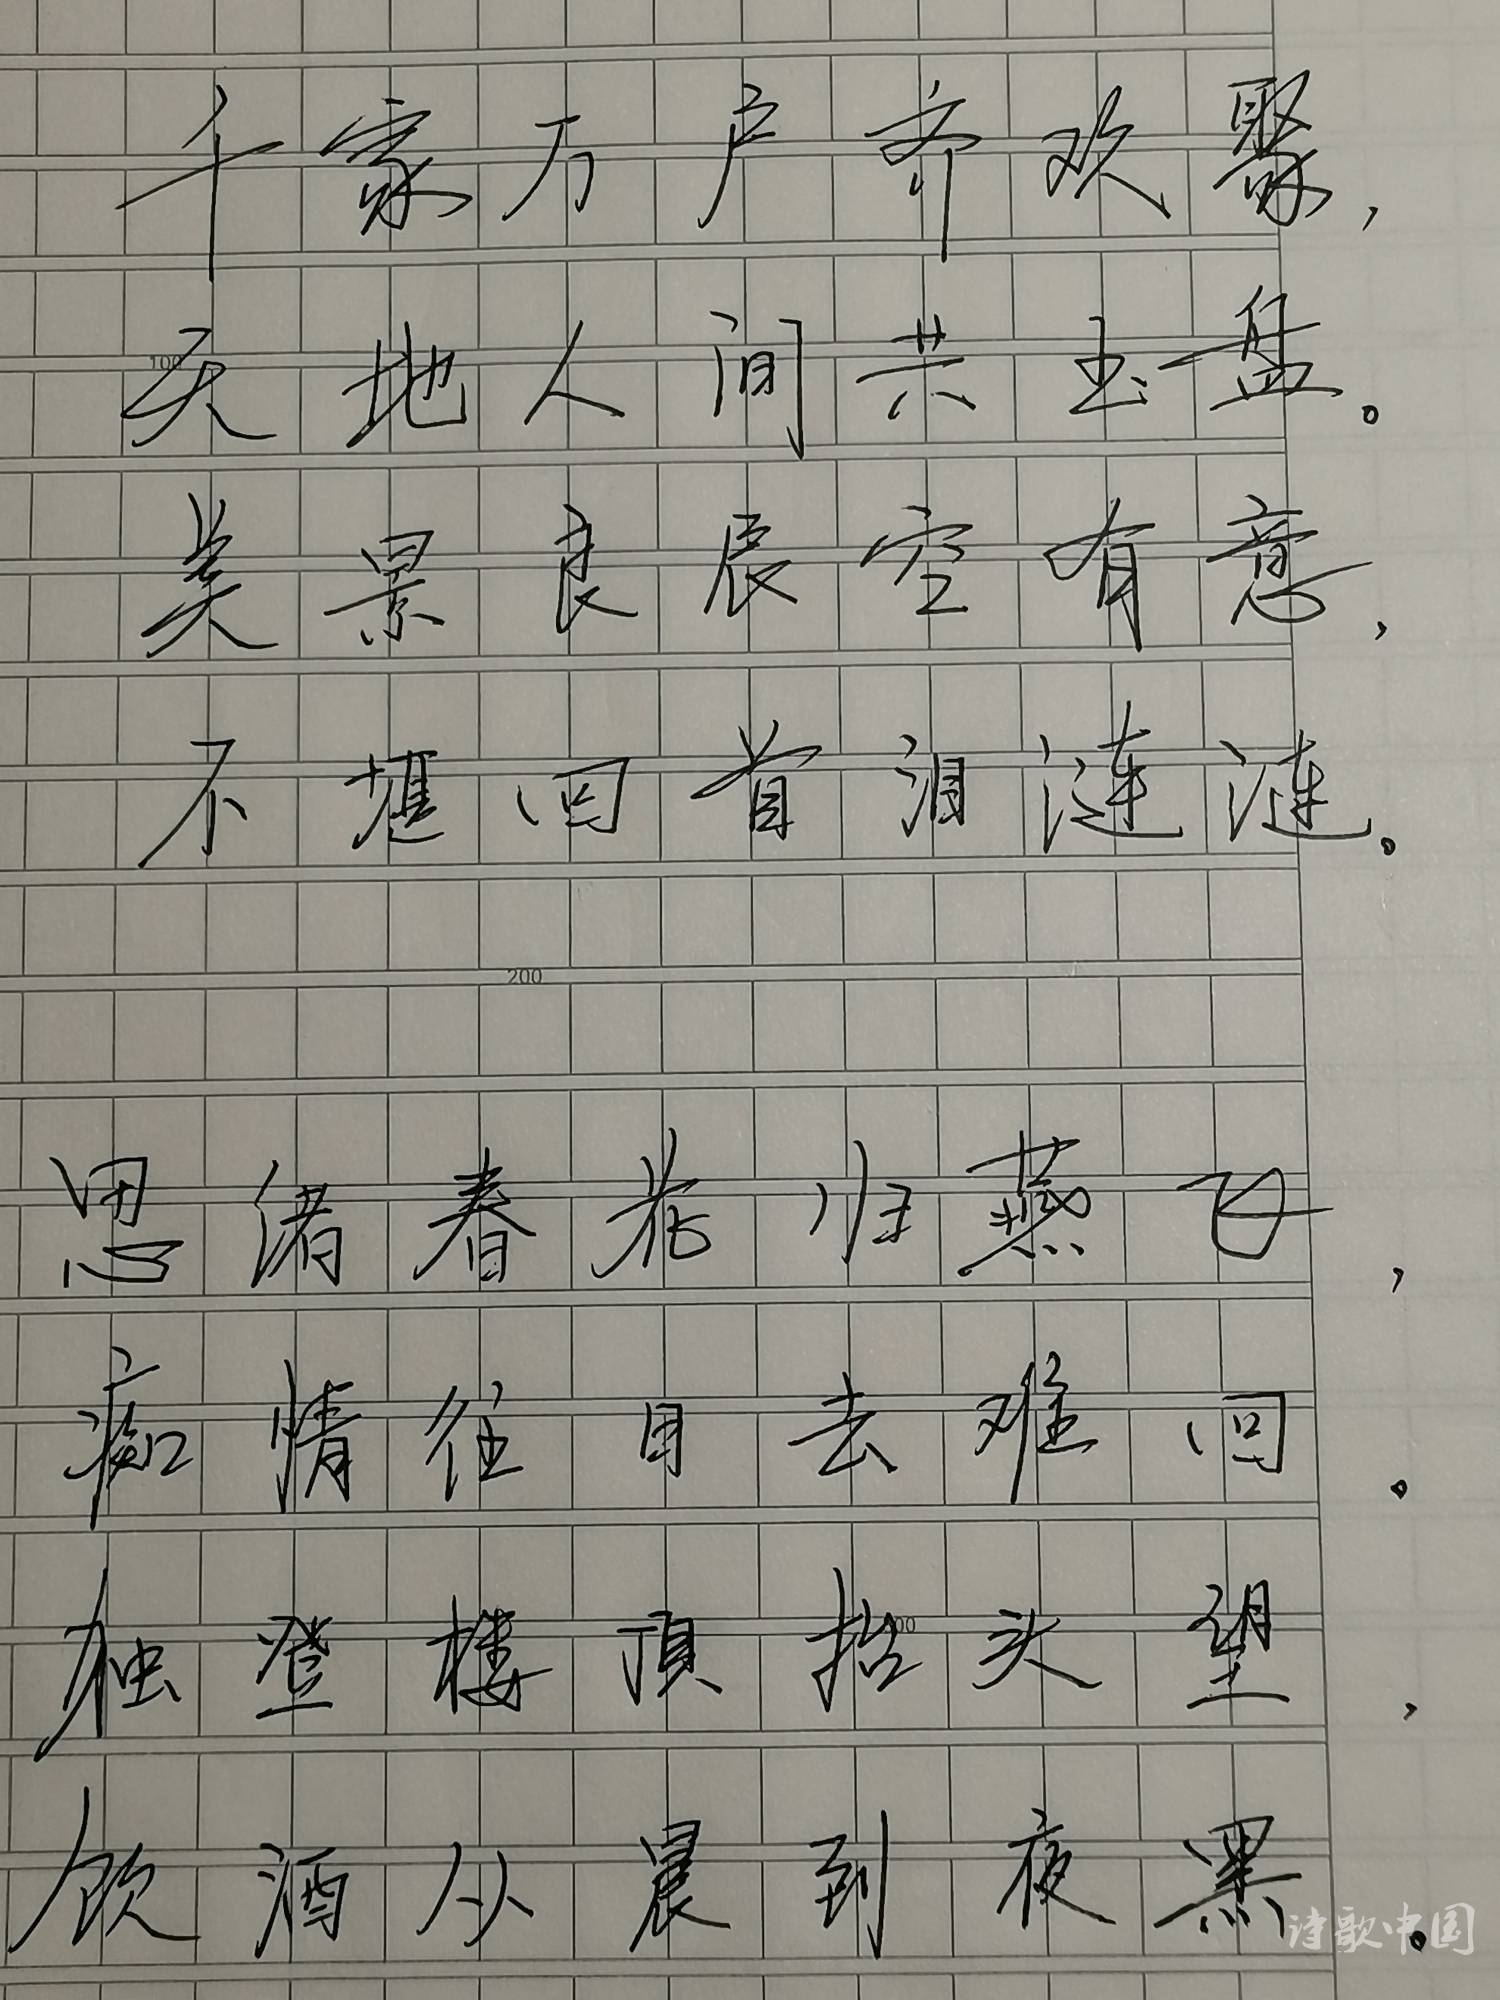 千家万户齐欢聚，
100
天地人间共玉盘。
美景良辰空有意，
不堪回首泪涟涟。
200
思绪春花归燕飞，
痴情往日去难回。
独登楼顶抬头望，
饮酒从晨到夜黑。
诗歌中国